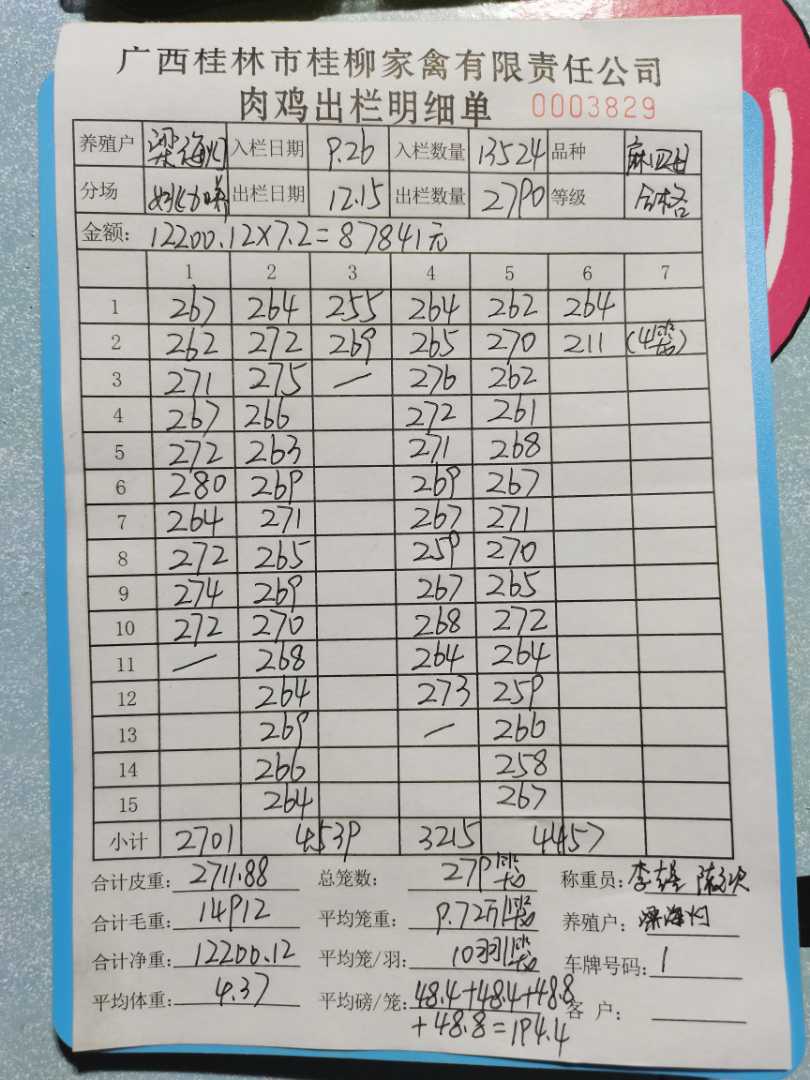 广西桂林市桂柳家禽有限责任公司
肉鸡出栏明细单 0003829
养殖户 梁海灯 入栏日期 9.26 入栏数量 13524 品种
分场 出栏日期 12.15 出栏数量 2790 等级 合格
金额: 12200.12×7.2=87841元
1 2 3 4 5 6 7
1 267 264 255 264 262 264
2 262 272 269 265 270 211 (4笼)
3 271 275 — 276 262
4 267 266 272 261
5 272 263 271 268
6 280 269 269 267
7 264 271 267 271
8 272 265 259 270
9 274 269 267 265
10 272 270 268 272
11 — 268 264 264
12 264 273 259
13 269 — 266
14 266 258
15 264 267
小计 2701 4539 3215 4457
合计皮重: 2711.88 总笼数: 279笼 称重员:
合计毛重: 14912 平均笼重: 9.72斤/笼 养殖户: 梁海灯
合计净重: 12200.12 平均笼/羽: 10羽/笼 车牌号码: 1
平均体重: 4.37 平均磅/笼: 48.4+48.4+48.8 客户:
+48.8=194.4